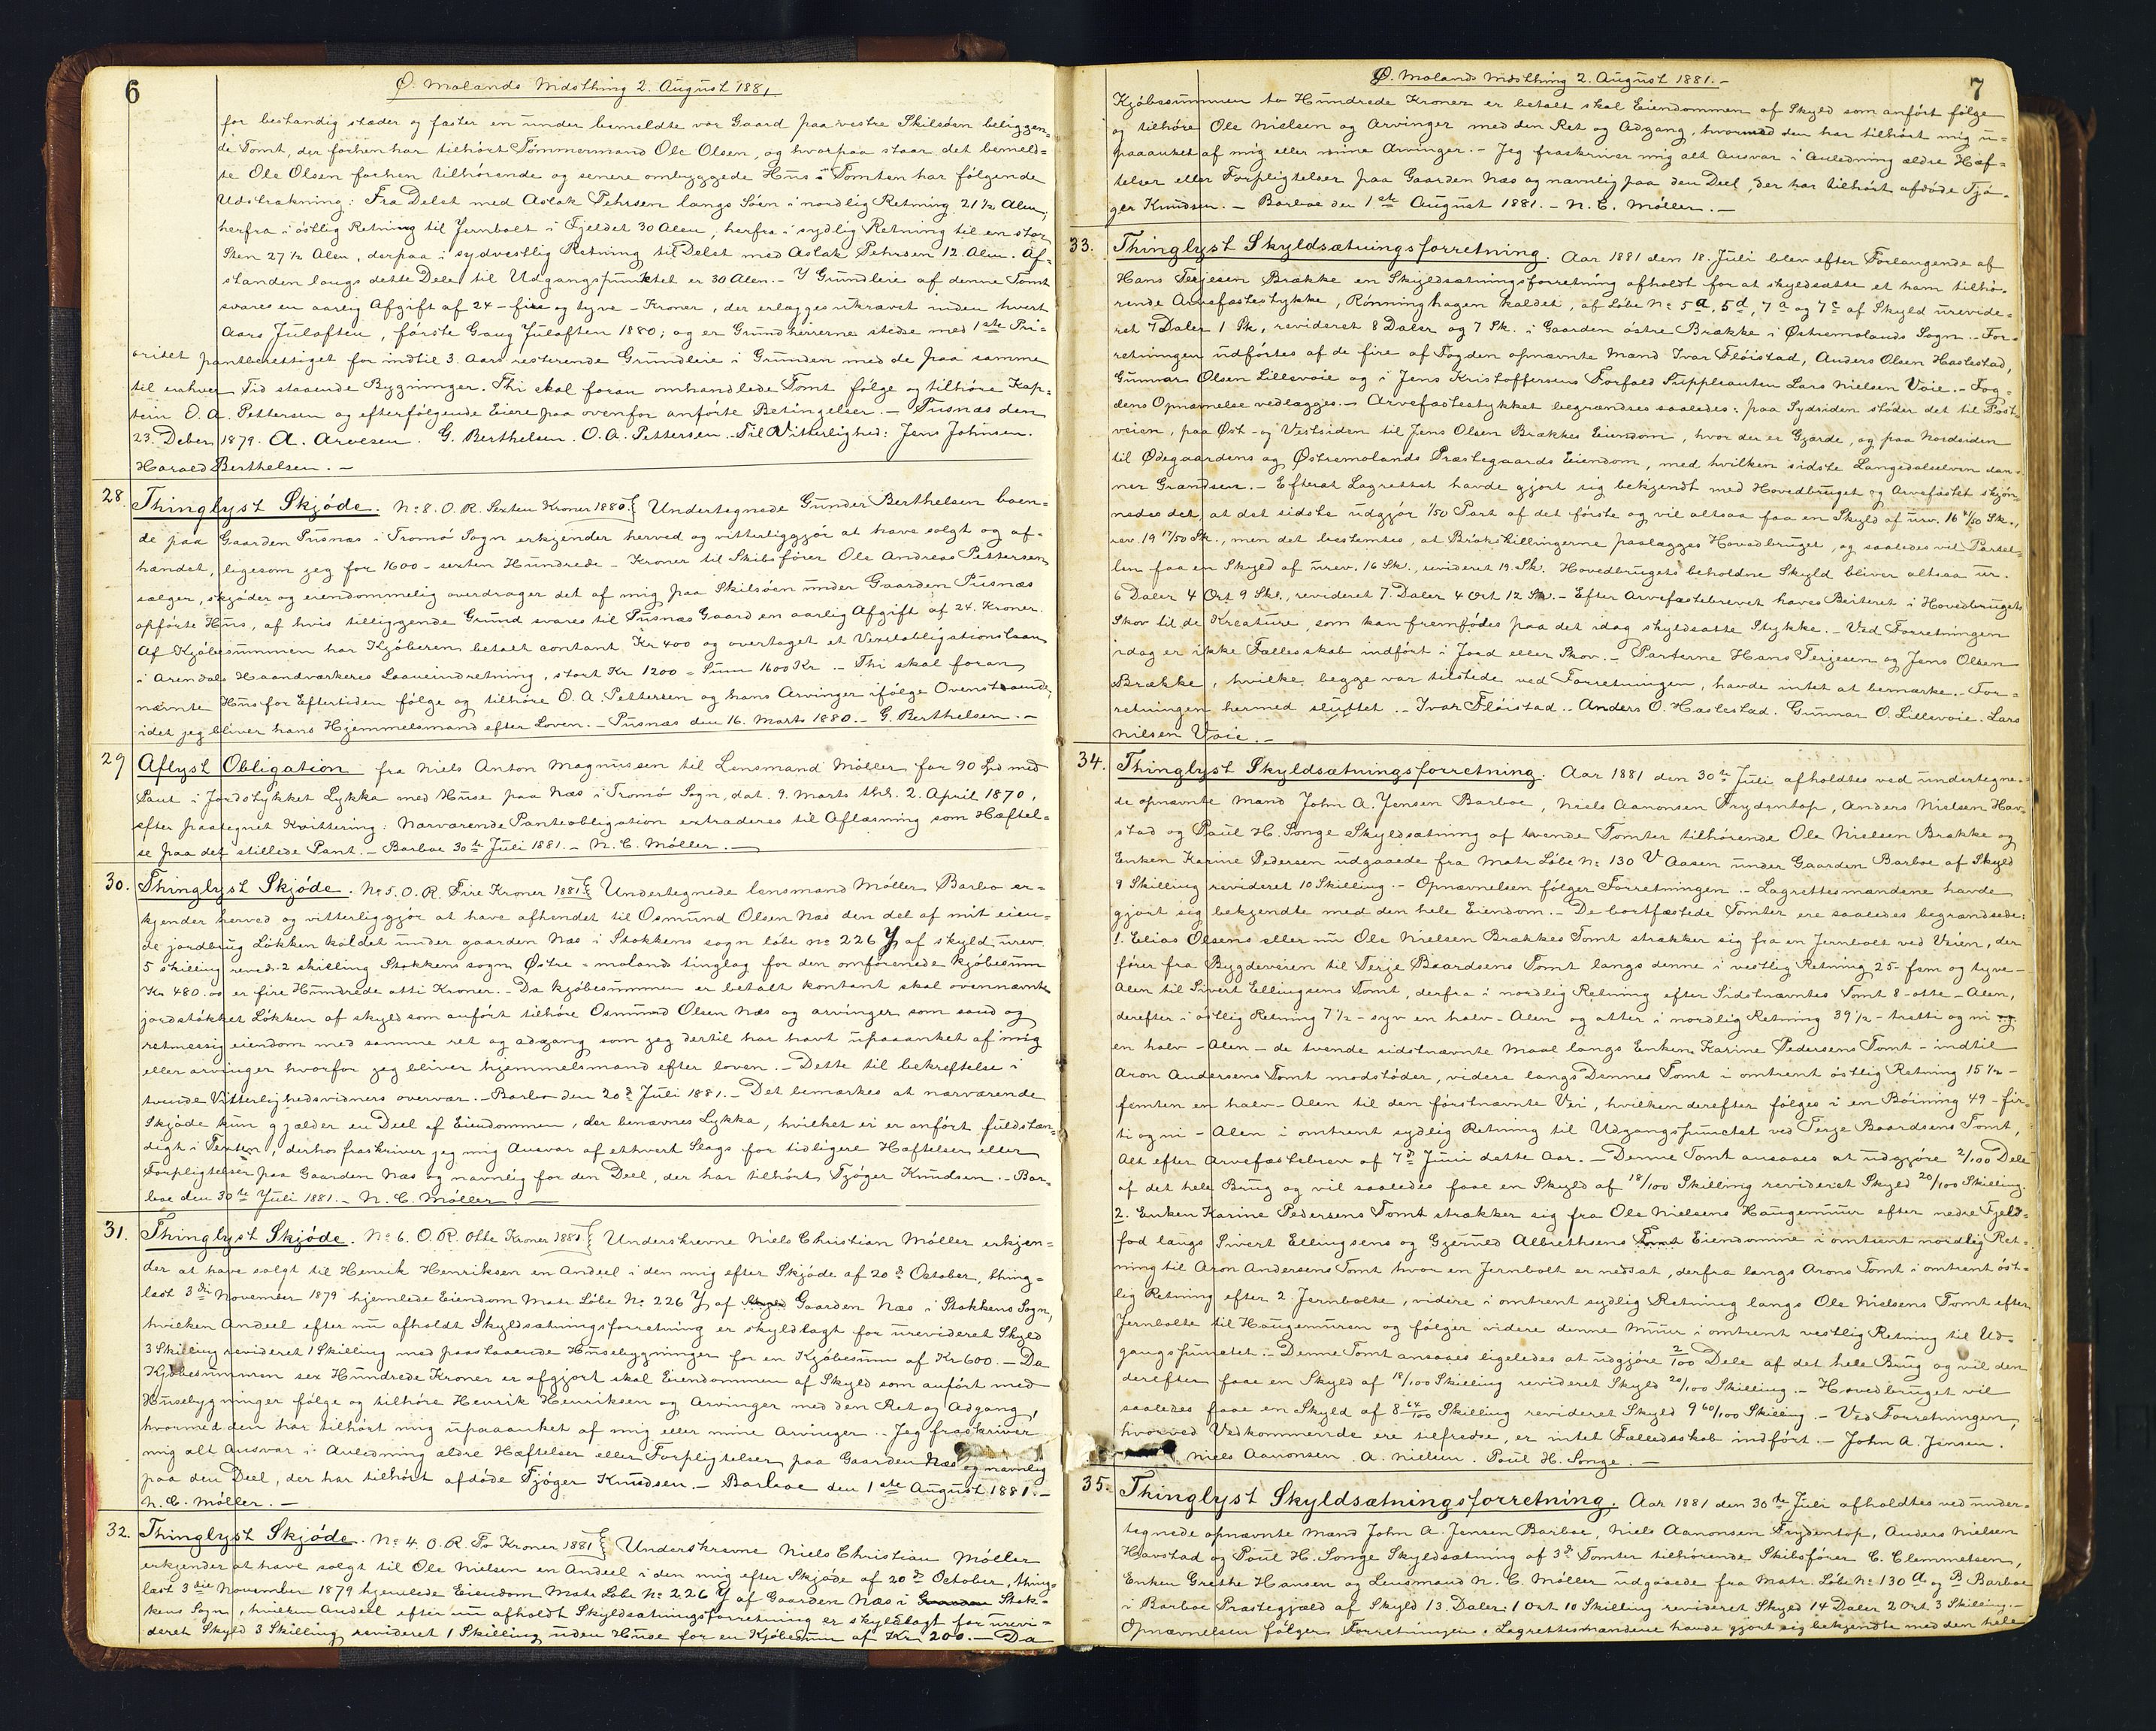 6
Ø. Molands Mdsthing 2. August 1881
for bestandig stæder og fæster en under bemeldte vor Gaard paa vestre Skilsøen beliggen-
de Tomt, der forhen har tilhørt Tømmermand Ole Olsen, og hvorpaa staar det bemeld-
te Ole Olsen forhen tilhørende og senere ombyggede Hus. Tomten har følgende
Udstrækning: Fra Delet med Aslak Pehrsen langs Søen i nordlig Retning 21½ Alen,
herfra i østlig Retning til Jernbolt i Fjeldet 30 Alen, herfra i sydlig Retning til en stor
Sten 27½ Alen, derpaa i sydvestlig Retning til Delet med Aslak Pehrsen 12 Alen. Af-
standen langs dette Dele til Udgangspunktet er 30 Alen. – Y Grundleie af denne Tomt
svares en aarlig Afgift af 24 – fire og tyve – Kroner, der erlægges ukrævet inden hvert
Aars Juleaften, første Gang Juleaften 1880; og er Grundherrerne stedse med 1ste Pri-
oritet panteberettiget for indtil 3. Aars resterende Grundleie i Grunden med de paa samme
til enhver Tid staaende Bygninger. Thi skal foran omhandlede Tomt følge og tilhøre Kap-
tein O. A. Pettersen og efterfølgende Eiere paa ovenfor anførte Betingelser. – Pusnæs den
23. Debr. 1879. A. Arvesen. G. Berthelsen. O. A. Pettersen. Til Vitterlighed: Jens Johnsen.
Harald Berthelsen. –
28 Thinglyst Skjøde. No 8. O. R. Sexten Kroner 1880. Undertegnede Gunder Berthelsen boen-
de paa Gaarden Pusnæs i Tromø Sogn erkjender herved og vitterliggjør at have solgt og af-
hændet, ligesom jeg for 1600 – sexten Hundrede – Kroner til Skibsfører Ole Andreas Pettersen
sælger, skjøder og eiendommelig overdrager det af mig paa Skilsøen under Gaarden Pusnæs
opførte Hus, af hvis tilliggende Grund svares til Pusnæs Gaard en aarlig Afgift af 24. Kroner.
Af Kjøbesummen har Kjøberen betalt contant Kr 400 og overtaget et Vexelobligationslaan
i Arendals Haandværkeres Laaneindretning, stort Kr 1200 = Sum 1600 Kr. – Thi skal foran
nævnte Hus for Eftertiden følge og tilhøre O. A. Pettersen og hans Arvinger ifølge Ovenstaaende,
idet jeg bliver hans Hjemmelsmand efter Loven. – Pusnæs den 16. Marts 1880. – G. Berthelsen. –
29 Aflyst Obligation fra Niels Anton Magnussen til Lensmand Møller for 90 Spd med
Pant i Jordstykket Lykka med Huse paa Næs i Tromø Sogn, dat. 9. Marts thl. 2. April 1870,
efter paategnet Kvittering: Nærværende Panteobligation extraderes til Aflæsning som Hæftel-
se paa det stillede Pant. – Barboe 30te Juli 1881. – N. C. Møller. –
30. Thinglyst Skjøde. No 5. O. R. Fire Kroner 1881 Undertegnede lensmand Møller, Barbo er-
kjender herved og vitterliggjør at have afhendet til Osmund Olsen Næs den del af mit eien-
de jordbrug Løkken kaldet under gaarden Næs i Stokkens sogn løbe no 226 y af skyld urev.
5 skilling reved. 2 skilling Stokkens sogn Østre-molands tinglag for den omforenede kjøbesum
Kr 480.00 er fire Hundrede otti Kroner. – Da kjøbesummen er betalt kontant skal ovennævnte
jordstøkket Løkken af skyld som anført tilhøre Osmund Olsen Næs og arvinger som sand og
retmessig eiendom med samme ret og adgang som jeg dertil har havt upaaanket af mig
eller arvinger hvorfor jeg bliver hjemmelsmand efter loven. – Dette til bekreftelse i
tvende Vitterlighedsvidners overvær. – Barbo den 20de Juli 1881. – Det bemærkes at nærværende
Skjøde kun gjælder en Deel af Eiendommen, der benævnes Lykka, hvilket ei er anført fuldstæn-
digt i Texten, derhos fraskriver jeg mig Ansvar af ethvert Slags for tidligere Hæftelser eller
Forpligtelser paa Gaarden Næs og navnlig for den Deel, der har tilhørt Tjøger Knudsen. – Bar-
boe den 30te Juli 1881. – N. C. Møller
31. Thinglyst Skjøde. No 6. O. R. Otte Kroner 1881. Underskrevne Niels Christian Møller erkjen-
der at have solgt til Henrik Henriksen en Andeel i den mig efter Skjøde af 20de October, thing-
læst 3die November 1879 hjemlede Eiendom Matr Løbe No 226 y af Gaarden Næs i Stokkens Sogn,
hvilken Andeel efter nu afholdt Skyldsætningsforretning er skyldlagt for urevideret Skyld
3 Skilling revideret 1 Skilling med paastaaende Husebygninger for en Kjøbesum af Kr 600. – Da
Kjøbesummen sex Hundrede Kroner er afgjort skal Eiendommen af Skyld som anført med
Husebygninger følge og tilhøre Henrik Henriksen og Arvinger med den Ret og Adgang,
hvormed den har tilhørt mig upaaanket af mig eller mine Arvinger. – Jeg fraskriver
mig alt Ansvar i Anledning ældre Hæftelser eller Forpligtelser paa Gaarden Næs og navnlig
paa den Deel, der har tilhørt afdøde Tjøger Knudsen. – Barboe den 1ste August 1881. –
N. C. Møller. –
32. Thinglyst Skjøde. No 4. O. R. To Kroner 1881 Underskrevne Niels Christian Møller
erkjender at have solgt til Ole Nielsen en Andeel i den mig efter Skjøde af 20de October, thing-
læst 3die November 1879 hjemlede Eiendom Matr Løbe No 226 y af Gaarden Næs i Stok-
kens Sogn, hvilken Andeel efter nu afholdt Skyldsætningsforretning er skyldlagt for urevi-
deret Skyld 3 Skilling revideret 1 Skilling uden Huse for en Kjøbesum af Kr 200. – Da
7
Ø. Molands Mdsthing 2. August 1881. –
Kjøbesummen to Hundrede Kroner er betalt skal Eiendommen af Skyld som anført følge
og tilhøre Ole Nielsen og Arvinger med den Ret og Adgang, hvormed den har tilhørt mig u-
paaanket af mig eller mine Arvinger. – Jeg fraskriver mig alt Ansvar i Anledning ældre Hæf-
telser eller Forpligtelser paa Gaarden Næs og navnlig paa den Deel, der har tilhørt afdøde Tjø-
ger Knudsen. – Barboe den 1ste August 1881. – N. C. Møller. –
33. Thinglyst Skyldsætningsforretning. Aar 1881 den 18. Juli blev efter Forlangende af
Hans Terjesen Brække en Skyldsætningsforretning afholdt for at skyldsætte et ham tilhø-
rende Arvefæstestykke, Rønninghagen kaldet, af Løbe No 5a, 5d, 7a og 7c af Skyld urevide-
ret 7 Daler 1 Sk, revideret 8 Daler og 7 Sk. i Gaarden østre Brække i Østremolands Sogn. – For-
retningen udførtes af de fire af Fogden opnævnte Mænd Ivar Fløistad, Anders Olsen Haslestad,
Gunnar Olsen Lillevoie og i Jens Kristoffersens Forfald Suppleanten Lars Nielsen Voie. – Fog-
dens Opnævnelse vedlægges. – Arvefæstestykket begrændses saaledes: paa Sydsiden støder det til Post-
veien, paa Øst- og Vestsiden til Jens Olsen Brækkes Eiendom, hvor der er Gjærde, og paa Nordsiden
til Ødegaardens og Østremolands Præstegaards Eiendom, med hvilken sidste Langedalselven dan-
ner Grændsen. – Efterat Lagrettet havde gjort sig bekjendt med Hovedbruget og Arvefæstet skjøn-
nedes det, at det sidste udgjør 1/50 Part af det første og vil altsaa faa en Skyld af urv. 16 /50 Sk.,
rev. 19 17/50 Sk., men det bestemtes, at Brøkskillingerne paalægges Hovedbruget, og saaledes vil Partel-
len faa en Skyld af urev. 16 Sk., revideret 19 Sk. Hovedbrugets beholdne Skyld bliver altsaa ur.
6 Daler 4 Ort 9 Skl., revideret 7. Daler 4 Ort 12 Sk. – Efter Arvefæstebrevet haves Beiteret i Hovedbrugets
Skov til de Kreature, som kan fremfødes paa det idag skyldsatte Stykke. – Ved Forretningen
idag er ikke Fællesskab indført i Jord eller Skov. – Parterne Hans Terjesen og Jens Olsen
Brække, hvilke begge var tilstede ved Forretningen, havde intet at bemærke. – For-
retningen hermed sluttet. – Ivar Fløistad. – Anders O. Haslestad. Gunnar O. Lillevoie. Lars
Nilsen Voie. –
34. Thinglyst Skyldsætningsforretning. Aar 1881 den 30te Juli afholdtes ved undertegne-
de opnævnte Mænd John A. Jensen Barboe, Niels Aanonsen Frydentop, Anders Nielsen Hav-
stad og Paul H. Songe Skyldsætning af tvende Tomter tilhørende Ole Nielsen Brække og
Enken Karine Pedersen udgaaede fra Matr Løbe No 130 V Aasen under Gaarden Barboe af Skyld
9 Skilling revideret 10 Skilling. – Opnævnelsen følger Forretningen. – Lagrettesmændene havde
gjort sig bekjendte med den hele Eiendom. – De bortfæstede Tomter ere saaledes begrændsede:
1. Elias Olsens eller nu Ole Nielsen Brækkes Tomt strækker sig fra en Jernbolt ved Veien, der
fører fra Bygdeveien til Terje Baardsens Tomt langs denne i vestlig Retning 25 - fem og tyve -
Alen til Sivert Ellingsens Tomt, derfra i nordlig Retning efter Sidstnævntes Tomt 8 – otte – Alen,
derefter i østlig Retning 7½ – syv en halv – Alen og atter i nordlig Retning 39½ – tretti og ni og
en halv – Alen – de tvende sidstnævnte Maal langs Enken Karine Pedersens Tomt – indtil
Aron Andersens Tomt modstøder, videre langs Dennes Tomt i omtrent østlig Retning 15½ –
femten en halv – Alen til den førstnævnte Vei, hvilken derefter følges i en Bøining 49 – fir-
ti og ni – Alen i omtrent sydlig Retning til Udgangspunctet ved Terje Baardsens Tomt,
Alt efter Arvefæstebrev af 7de Juni dette Aar. – Denne Tomt ansaaes at udgjøre 2/100 Dele
af det hele Brug og vil saaledes faae en Skyld af 18/100 Skilling revideret Skyld 20/100 Skilling.
2. Enken Karine Pedersens Tomt strækker sig fra Ole Nielsens Haugemuur efter nedre Fjeld-
fod langs Sivert Ellingsens og Gjerued Albrethsens Eiendomme i omtrent nordlig Ret-
ning til Aron Andersens Tomt hvor en Jernbolt er nedsat, derfra langs Arons Tomt i omtrent øst-
lig Retning efter 2 Jernbolte, videre i omtrent sydlig Retning langs Ole Nielsens Tomt efter
Jernbolte til Haugemuren og følger videre denne Muur i omtrent vestlig Retning til Ud-
gangspunctet. – Denne Tomt ansaaes ligeledes at udgjøre 2/100 Dele af det hele Brug og vil den
derefter faae en Skyld af 18/100 Skilling revideret Skyld 20/100 Skilling. – Hovedbruget vil
saaledes faae en Skyld af 8 64/100 Skilling revideret Skyld 9 60/100 Skilling. – Ved Forretningen,
hvorved Vedkommende ere tilfredse, er intet Fælledsskab indført. – John A. Jensen.
Niels Aanonsen. A. Nielsen. Poul H. Songe. –
35. Thinglyst Skyldsætningsforretning. Aar 1881 den 30te Juli afholdtes ved under-
tegnede opnævnte Mænd John A. Jensen Barboe, Niels Aanonsen Frydentop, Anders Nielsen
Havstad og Poul H. Songe Skyldsætning af 3de Tomter tilhørende Skibsfører C. Clemmetsen,
Enken Grethe Hansen og Lensmand N. C. Møller udgaaede fra Matr. Løbe No 130 a og B Barboe
i Barboe Præstegjæld af Skyld 13 Daler 1 Ort 10 Skilling revideret Skyld 14 Daler 2 Ort 3 Skilling. –
Opnævnelsen følger Forretningen. Lagrettesmændene havde gjort sig bekjendte med den hele